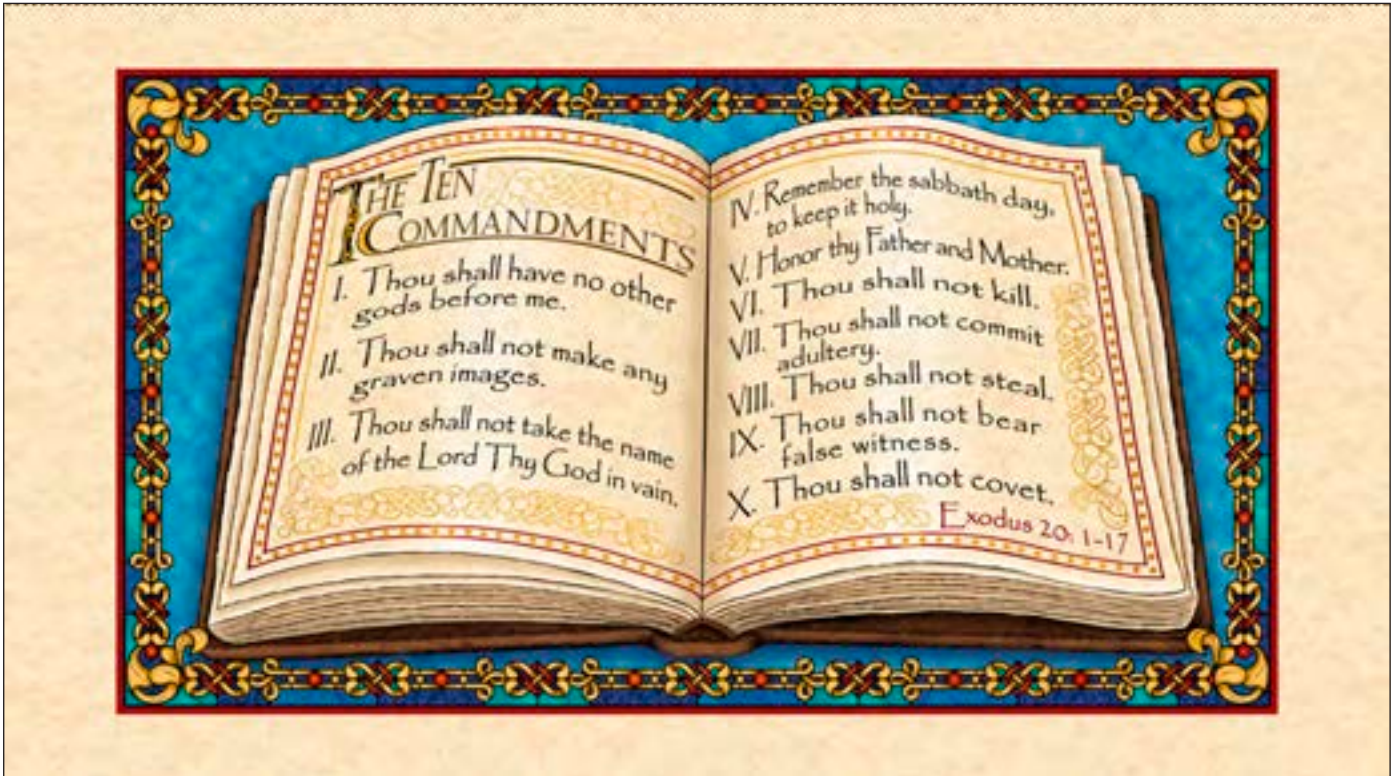 THE TEN
COMMANDMENTS
I. Thou shall have no other
gods before me.
II. Thou shall not make any
graven images.
III. Thou shall not take the name
of the Lord Thy God in vain.
IV. Remember the sabbath day,
to keep it holy.
V. Honor thy Father and Mother.
VI. Thou shall not kill.
VII. Thou shall not commit
adultery.
VIII. Thou shall not steal.
IX. Thou shall not bear
false witness.
X. Thou shall not covet.
Exodus 20: 1-17